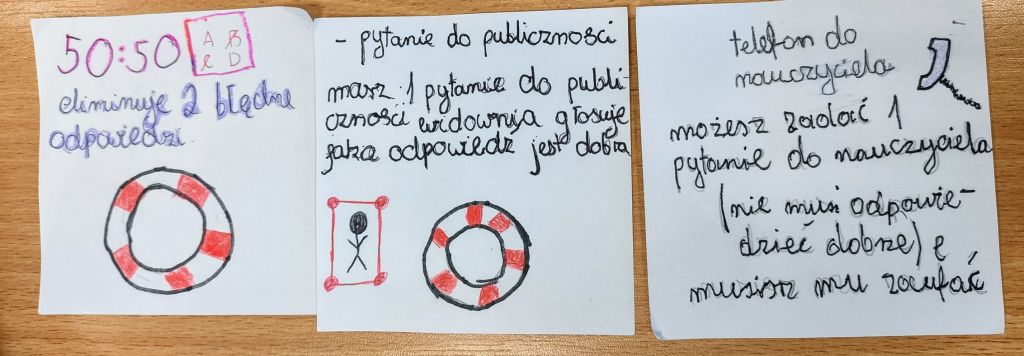 50:50
A B
C D
eliminuje 2 błędne
odpowiedzi
- pytanie do publiczności
masz 1 pytanie do publi-
czności widownia głosuje
jaka odpowiedź jest dobra
telefon do
nauczyciela
możesz zadać 1
pytanie do nauczyciela
(nie musi odpowie-
dzieć dobrze) ę
musisz mu zaufać